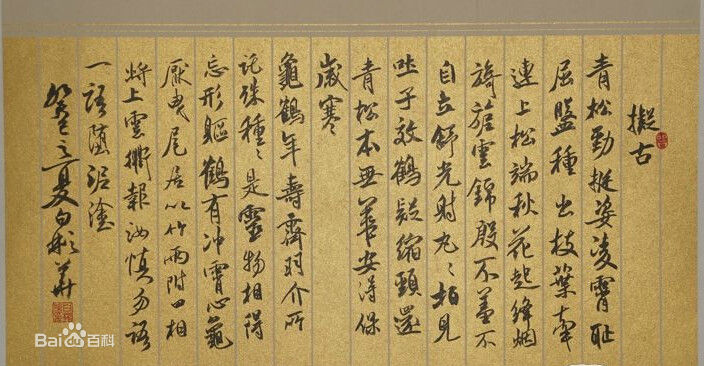 擬古
青松勁挺姿凌霄耻
屈盤種出枝葉牽
連上松端秋花起絳烟
旖旎雲錦殷不羞不
自立舒光射丸〻柏見
吐子效鶴疑縮頸還
青松本無華安得保
歲寒
龜鶴年壽齊羽介所
託殊種〻是靈物相得
忘形軀鶴有沖霄心龜
厭曳尾居以竹兩附口相
將上雲衢報汝慎勿語
一語墮泥塗
癸巳之夏白彬華
Bai百科